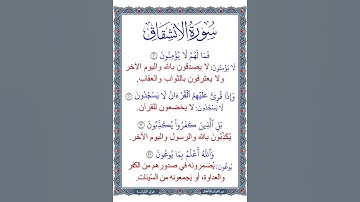 سُورَةُ الِانْشِقَاقِ
فَمَا لَهُمْ لَا يُؤْمِنُونَ ۝٢٠
لَا يُؤْمِنُونَ: لا يصدقون بالله واليوم الآخر
ولا يعترفون بالثواب والعقاب.
وَإِذَا قُرِئَ عَلَيْهِمُ الْقُرْءَانُ لَا يَسْجُدُونَ ۝٢١
لَا يَسْجُدُونَ: لا يخضعون للقرآن.
بَلِ الَّذِينَ كَفَرُوا يُكَذِّبُونَ ۝٢٢
يُكَذِّبُونَ بالله والرسول واليوم الآخر.
وَاللَّهُ أَعْلَمُ بِمَا يُوعُونَ ۝٢٣
يُوعُونَ: يُضمِرونه في صدورهم من الكفر
والعداوة، أو يَجمعونه من السيئات.